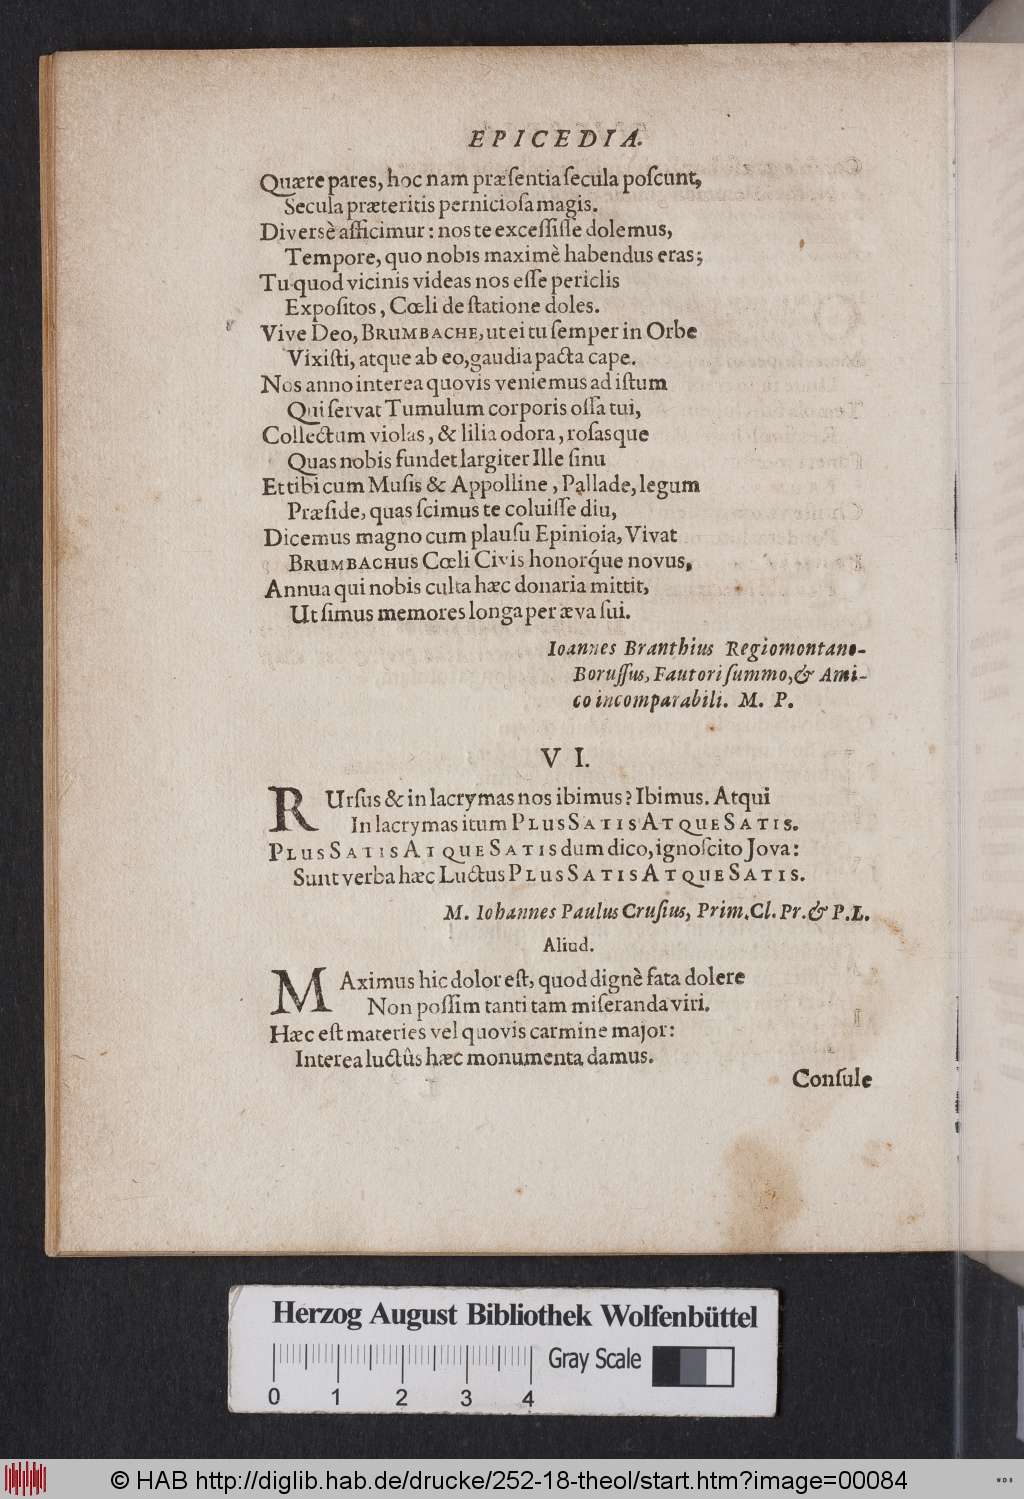 EPICEDIA.
Quære pares, hoc nam præſentia ſecula poſcunt,
Secula præteritis pernicioſa magis.
Diversè afficimur: nos te exceſſiſſe dolemus,
Tempore, quo nobis maximè habendus eras;
Tu quod vicinis videas nos eſſe periclis
Expoſitos, Cœli de ſtatione doles.
Vive Deo, BRUMBACHE, ut ei tu ſemper in Orbe
Vixiſti, atque ab eo, gaudia pacta cape.
Nos anno interea quovis veniemus ad iſtum
Qui ſervat Tumulum corporis oſſa tui,
Collectum violas, & lilia odora, roſasque
Quas nobis fundet largiter Ille ſinu
Et tibi cum Muſis & Appolline, Pallade, legum
Præſide, quas ſcimus te coluiſſe diu,
Dicemus magno cum plauſu Epinioia, Vivat
BRUMBACHUS Cœli Civis honorq́ue novus,
Annua qui nobis culta hæc donaria mittit,
Ut ſimus memores longa per æva ſui.
Ioannes Branthius Regiomontano-
Boruſſus, Fautori ſummo, & Ami-
co incomparabili. M. P.
VI.
RUrſus & in lacrymas nos ibimus? Ibimus. Atqui
In lacrymas itum PLUS SATIS ATQUE SATIS.
PLUS SATIS ATQUE SATIS dum dico, ignoſcito Jova:
Sunt verba hæc Luctus PLUS SATIS ATQUE SATIS.
M. Iohannes Paulus Cruſius, Prim. Cl. Pr. & P.L.
Aliud.
MAximus hic dolor eſt, quod dignè fata dolere
Non poſſim tanti tam miſeranda viri.
Hæc eſt materies vel quovis carmine major:
Interea luctûs hæc monumenta damus.
Conſule
Herzog August Bibliothek Wolfenbüttel
Gray Scale
0 1 2 3 4
© HAB http://diglib.hab.de/drucke/252-18-theol/start.htm?image=00084